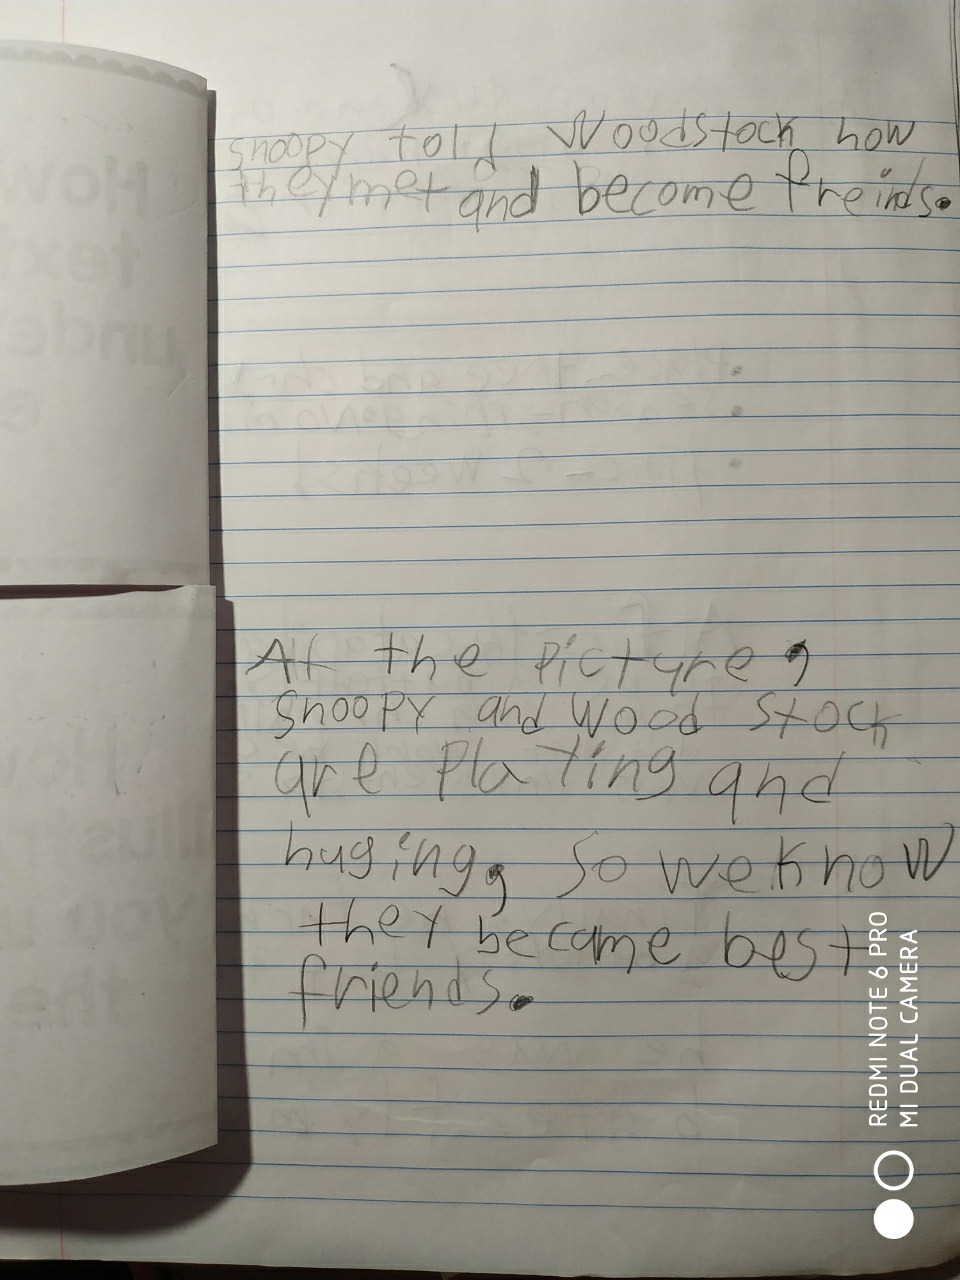 Snoopy told Woodstock how
they met and become freinds.
At the picture,
Snoopy and Wood stock
are Playing and
huging, So we know
they became best
friends.
How
tex
unde
s
How
illustr
you u
the
REDMI NOTE 6 PRO
MI DUAL CAMERA